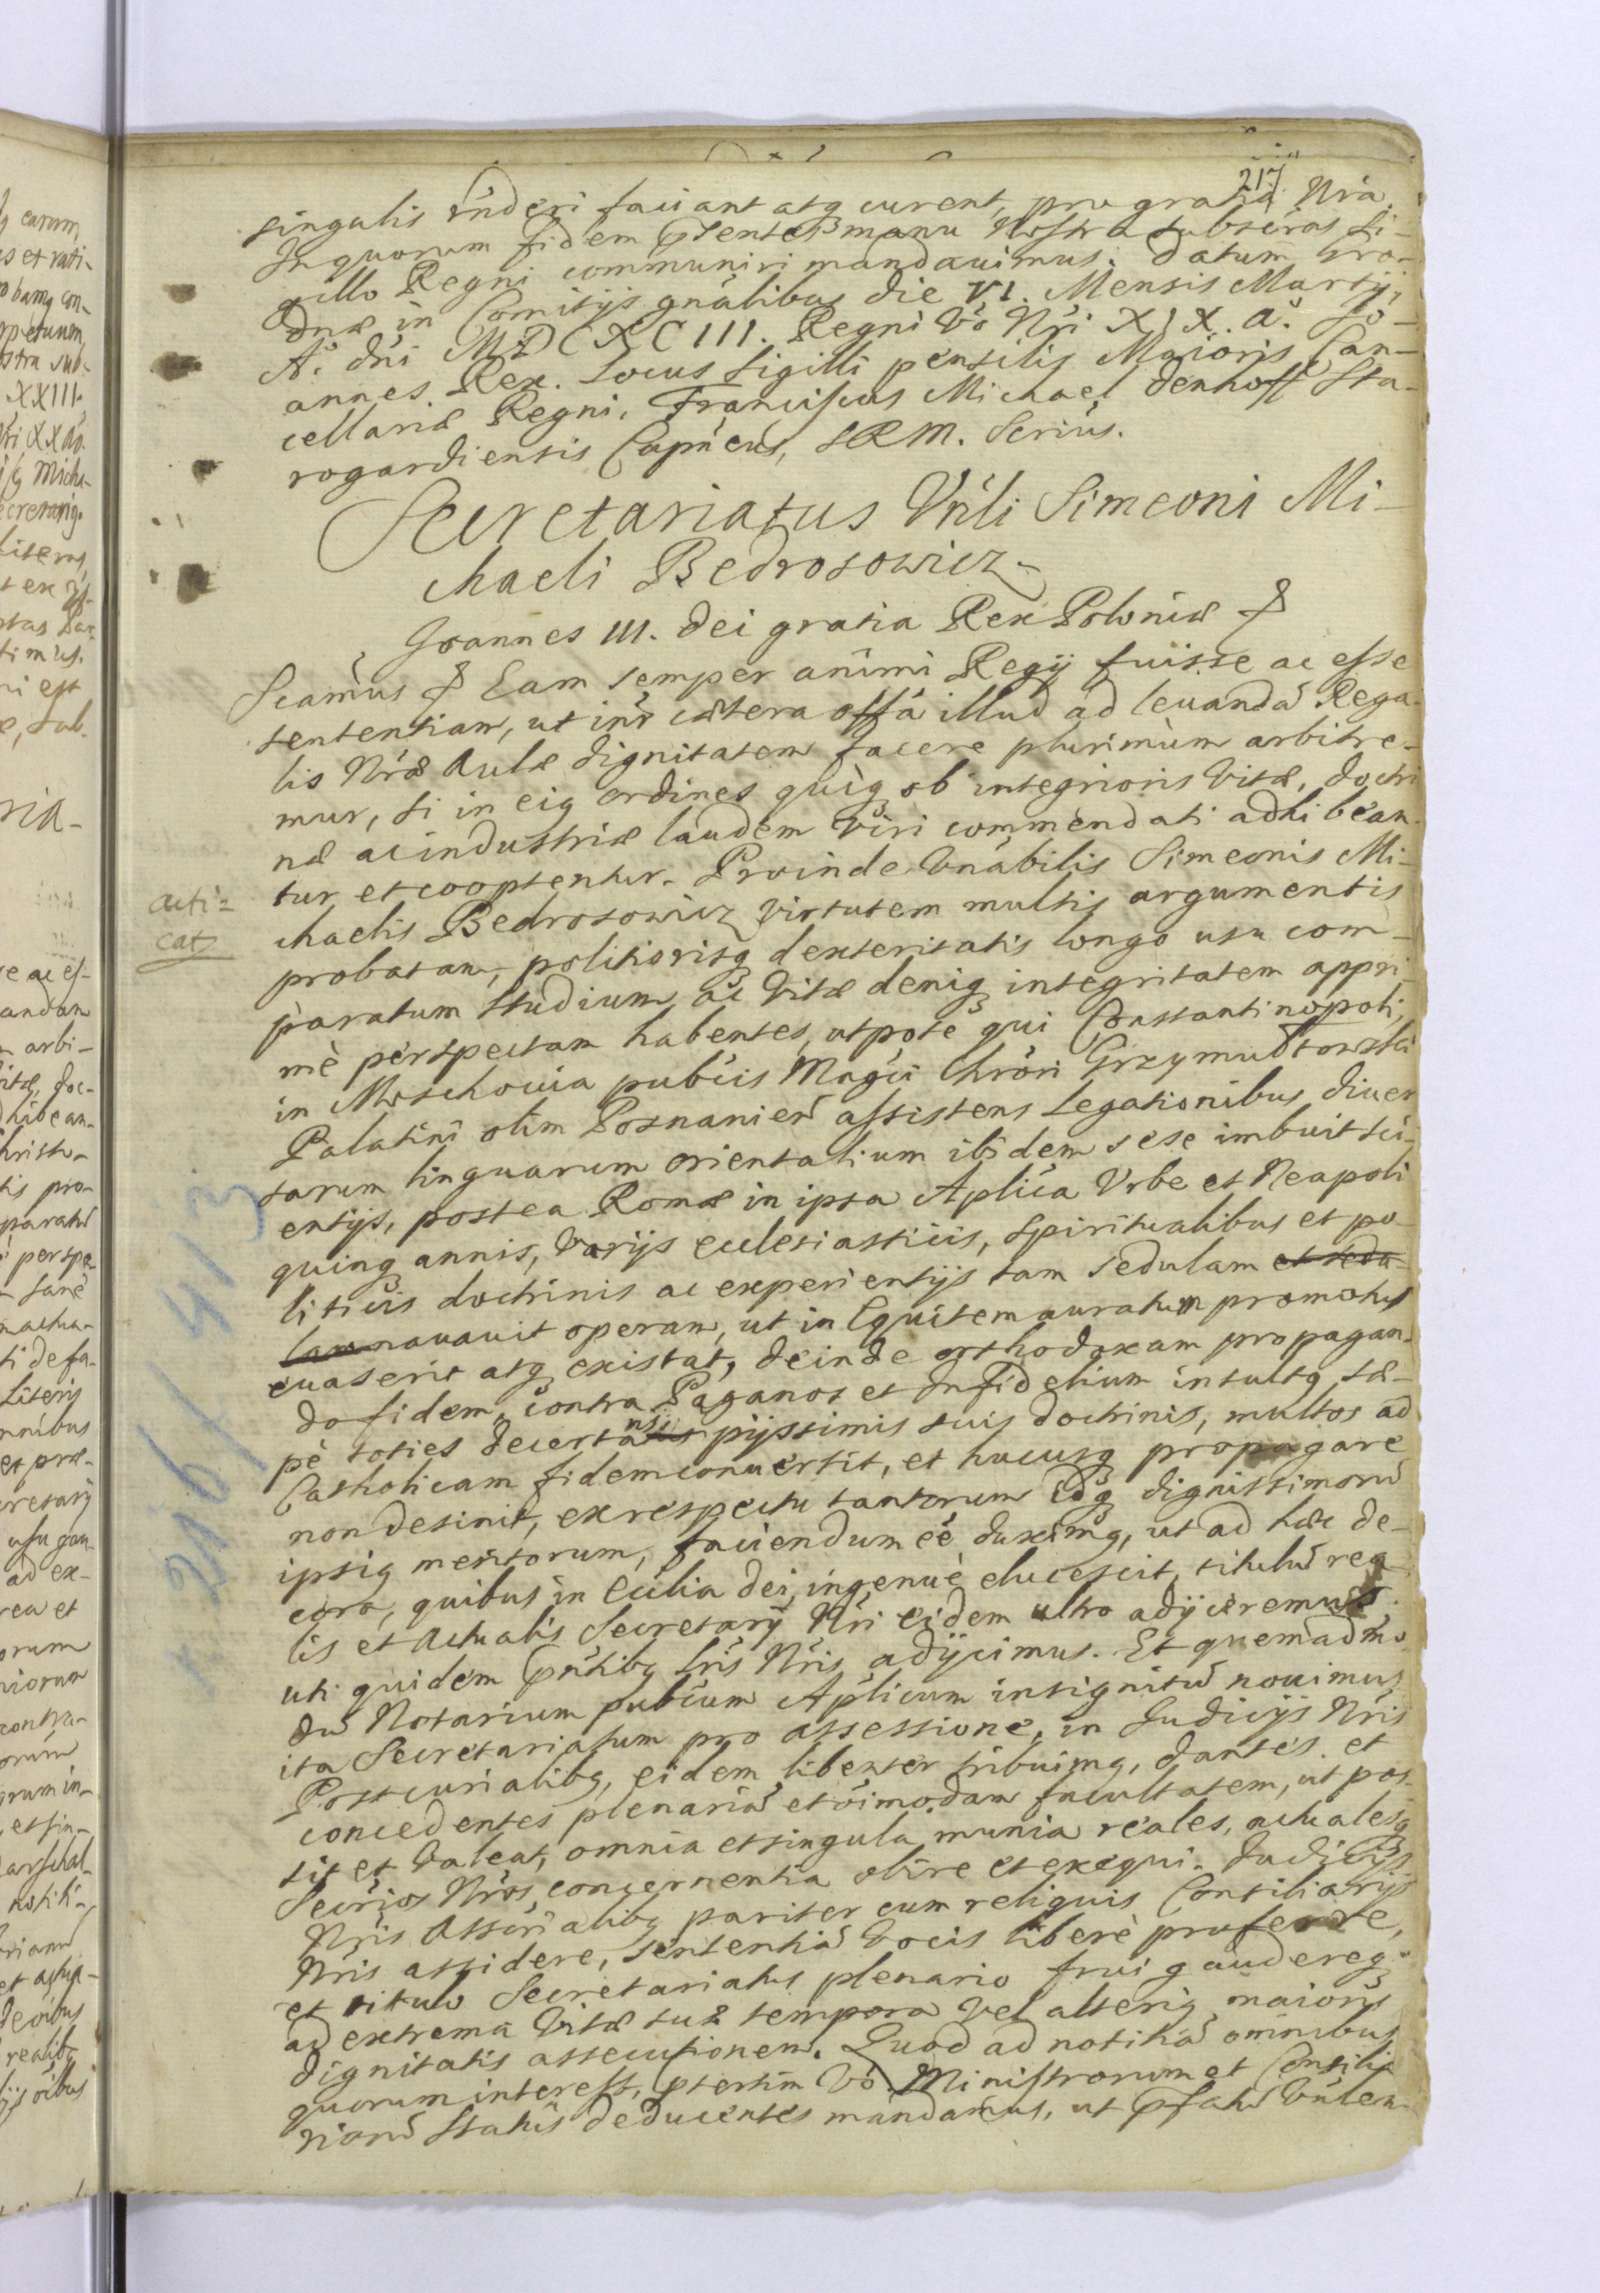 217
singulis rñderi faciant atq curent, pro gratia Nrã.
In quorum fidem pñtes manu Nostra subscras si-
gillo Regni communiri mandavimus. Datum Gro-
dnæ in Comitijs gnãlibus die VI. Mensis Martij
Aº dñi MDCXCIII. Regni vº Nri XIX. aº. Jo-
annes Rex. Locus Sigilli pensilis Maioris Can-
cellariæ Regni. Franciscus Michael Denhoff Sta-
rogardiensis Capñeus, SRM. Scrius.
Secretariatus Vñli Simeoni Mi-
chaeli Bedrosowicz
Joannes III. Dei gratia Rex Poloniæ &
Sciamus & Eam semper animi Regij fuisse ac esse
sententiam, ut intr cætera offa illud ad leuandã Rega-
lis Nræ Aulæ dignitatem facere plurimùm arbitre-
mur, si in eiq ordines quiq ob integrioris vitæ, doctri
næ ac industriæ laudem viri commendati adhibean-
tur et cooptentur. Proinde Vnãbilis Simeonis Mi-
chaelis Bedrosowicz virtutem multis argumentis
probatam, politiorisq dexteritatis longo usu com-
paratum studium ac vitæ deniq integritatem appri-
mè perspectam habentes, utpote qui Constantinopoli,
in Moschouia publicis Magci Chrõri Grzymułtowski
Palatini olim Posnanien assistens Legationibus diuer
sarum linguarum orientalium ibidem sese imbuit sci-
entijs, postea Romæ in ipsa Aplica Vrbe et Neapoli
quinq annis, varijs ecclesiasticis, spiritualibus et po-
liticis doctrinis ac experientijs tam sedulam et sedu-
lam nauauit operam, ut in Equitem auratum promotus
euaserit atq existat, deinde orthodoxam propagan-
do fidem, contra Paganos et Infidelium insultq sæ-
pè toties decertans pijssimis suis doctrinis, multos ad
Catholicam fidem conuertit, et hucusq propagare
non desinit, ex respectu tantorum idq dignissimorũ
ipsiq meritorum, faciendum eẽ duximq, ut ad hæc de-
cora, quibus in Ecclia dei ingenuè elucescit, titulũ rega
lis et Actualis Secretarij Nri eidem ultro adijceremus
uti quidem pñtibq lris Nris adijcimus. Et quemadmo
dũ Notarium publicum Aplicum insignitũ nouimus
ita Secretariatum pro assessione, in Judicijs Nris
Postcurialibq, eidem libenter tribuimq, dantes et
concedentes plenariã et oimodam facultatem, ut pos-
sit et valeat, omnia et singula munia reales, actualesq
Secrios Nros concernentia obire et exequi. Judicijs
Nris Assorialibq pariter cum reliquis Consiliarijs
Nris assidere, sententiã vocis liberè proferre,
et titulo Secretariatus plenario frui gaudereq
ad extrema vitæ suæ tempora vel alteriq maioris
dignitatis assecutionem. Quod ad notitiã omnibus
quorum interest, ptertim vº Ministrorum et Consilia
riorũ Status deducentes mandamus, ut pfatũ Vñlem
acti=
cat